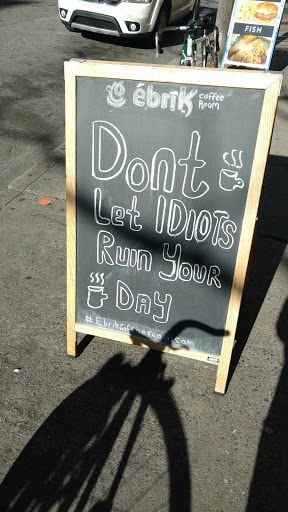 ébrik coffee
Room
Dont
Let IDIOTS
Ruin Your
DAY
FISH